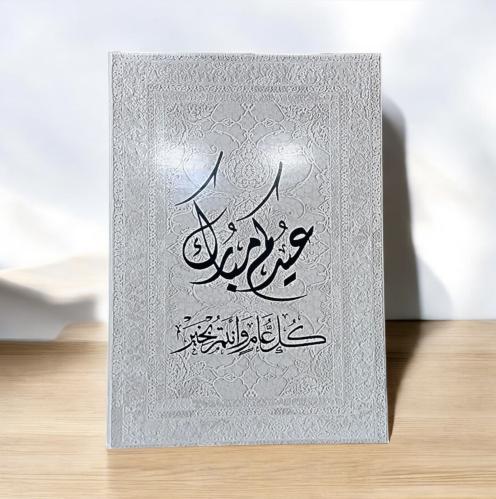 عيدكم مبارك
كُل عَام وَأنتُم بِخَيرْ